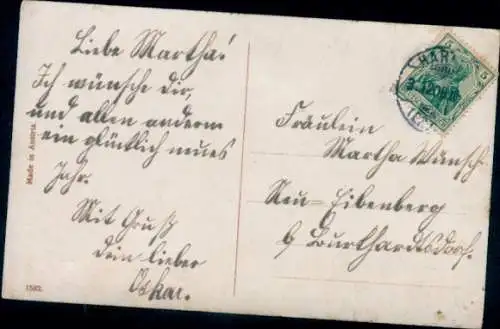 Liebe Martha!
Ich wünsche dir,
und allen andern
ein glücklich neues
Jahr.
Mit Gruß
dein lieber
Oskar.
Made in Austria
1582.
5 5
Fräulein
Martha Wünsch
Neu-Eibenberg
b Burkhardtsdorf.